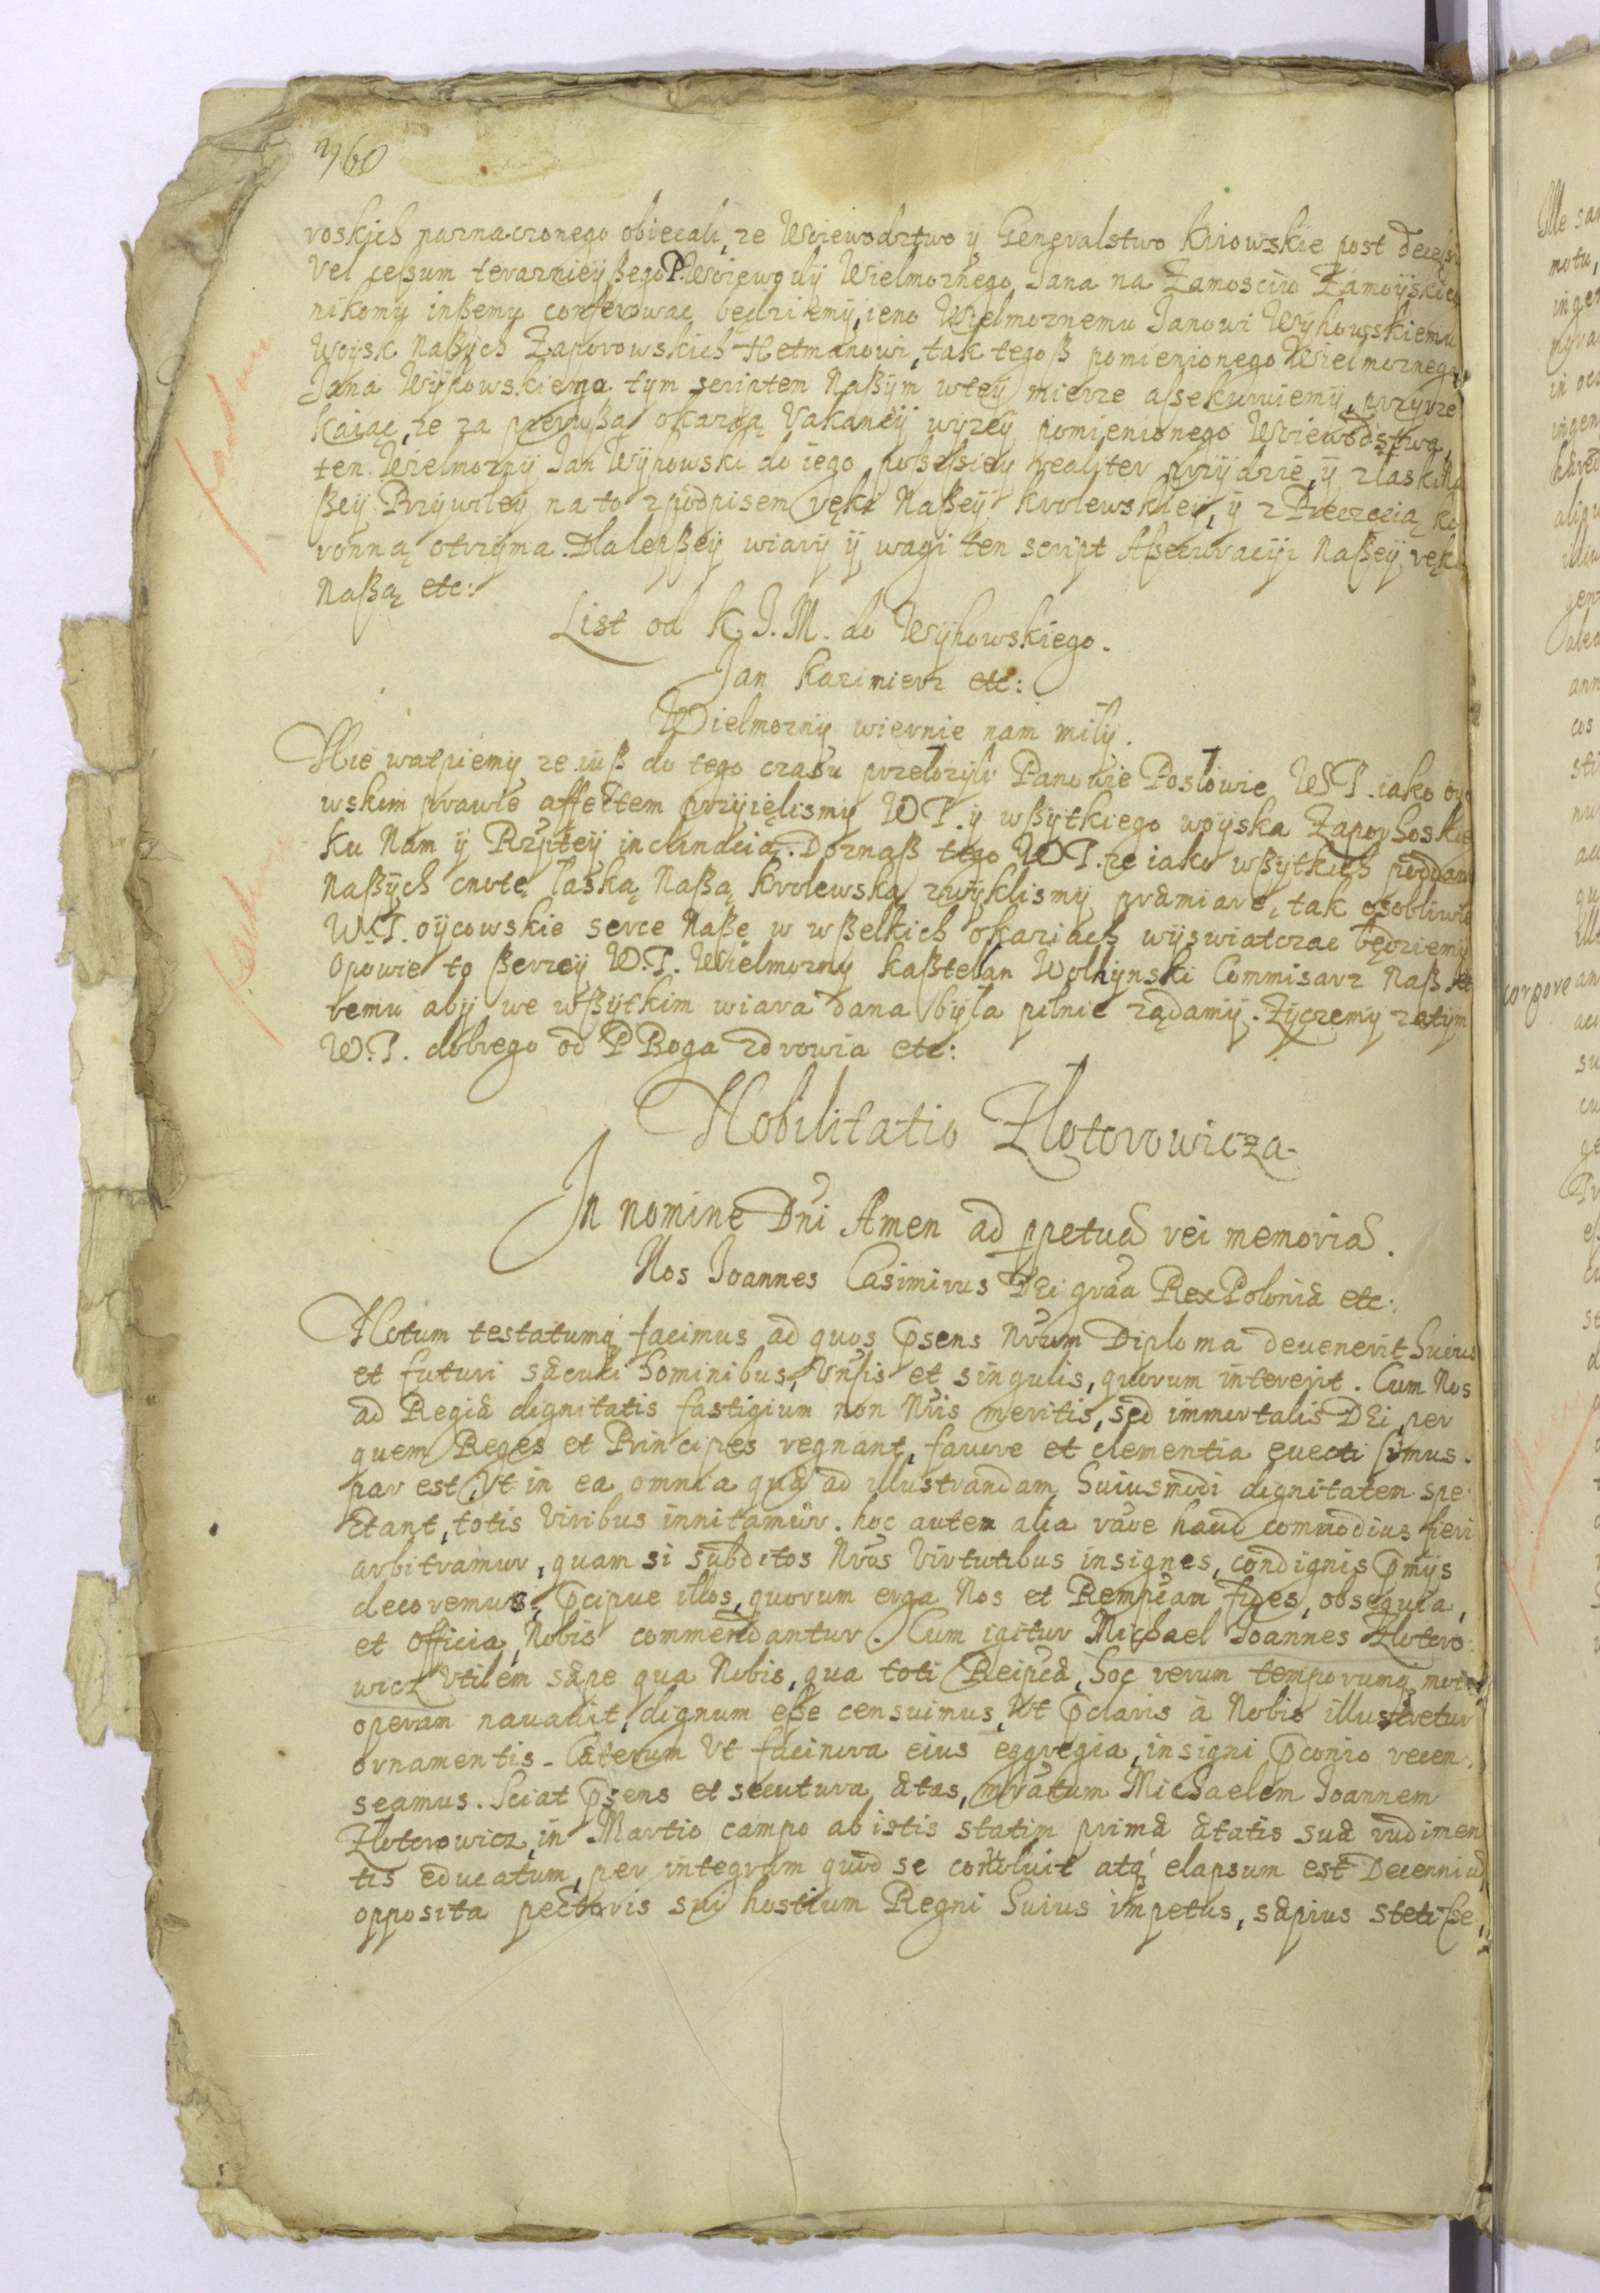 760
roskich purnaczonego obiecali, ze Woiewodztwo ÿ Generalstwo Kiowskie post decess
vel cessum terazniejßego P. Woiewody Wielmoznego Jana na Zamosciu Zamoÿskie
nikomu inßemu conferowac bedziemÿ, ieno Wielmoznemu Janowi Wÿhowskiemu
Woÿsk Naßÿch Zaporowskich Hetmanowi, tak tegoß pomienionego Wielmoznego
Jana Wÿhowskiego tym scriptem Naßÿm wteÿ mierze assekuruiemÿ, przyrze
kaiąc, ze za pierwßą okazÿą Vakancÿ wÿzeÿ pomienionego Woiewodstwa,
ten Wielmoznÿ Jan Wÿhowski do iego possessiey realiter przÿdzie, ÿ z laski Na
ßeÿ Przÿwileÿ na to z podpisem ręki Naßeÿ Krolewskieÿ, ÿ z Pieczecią Ko
ronną otrzÿma. Dla lepßeÿ wiarÿ ÿ wagi ten script Assecuracÿi Naßeÿ ręką
Naßą etc:
List od K. J. M. do Wÿhowskiego.
Jan Kazimierz etc:
Wielmoznÿ wiernie nam milÿ.
Nie watpiemÿ ze iuß do tego czasu przelozÿli Panowie Poslowie W.T. iako oÿco
wskim prawie affectem przÿielismÿ W.T. ÿ wßÿtkiego woÿska Zaporhoskie
ku Nam ÿ Rzpteÿ inclinacią. Doznaß tego W.T. ze iako wßÿtkich poddanÿ
Naßÿch cnotę laską Naßą Krolewską zwÿklismÿ præmiare, tak osobliwie
W.T. oÿcowskie serce Naße w wßelkich okaziach wÿswiatczac będziemÿ
Opowie to ßerzeÿ W.T. Wielmoznÿ Kaßtelan Wolhÿnski Commisarz Naß kto
remu abÿ we wßÿtkim wiara dana bÿla pilnie ządamÿ. Zÿczemÿ zatÿm
W.T. dobrego od P Boga zdrowia etc:
Nobilitatio Zlotorowicza.
In nomine Dni Amen ad ppetuã rei memoriã.
Nos Joannes Casimirus DEi graa Rex Poloniæ etc:
Notum testatumq facimus ad quos psens Nrum Diploma deuenerit huius
et futuri sæculi hominibus, Vnsis et singulis, quorum intererit. Cum Nos
ad Regiæ dignitatis fastigium non Nris meritis, sed immortalis DEi, per
quem Reges et Principes regnant, fauore et clementia euecti simus.
par est, Vt in ea omnia quæ ad illustrandam huiusmodi dignitatem spe
ctant, totis Viribus innitamur. hoc autem alia raoe haud commodius fieri
arbitramur, quam si subditos Nros Virtutibus insignes, condignis pmÿs
decoremus, pcipue illos, quorum erga Nos et Rempcam fides, obsequia,
et Officia, Nobis commendantur. Cum igitur Michael Joannes Zlotoro
wicz Vtilem sæpe qua Nobis, qua toti Reipcæ, hoc rerum temporumq motu,
operam nauauit, dignum esse censuimus, Vt pclaris à Nobis illustretur
ornamentis. Cæterum Vt facinora eius eggregia, insigni pconio recen
seamus. Sciat psens et secutura ætas, mratum Michaelem Joannem
Zlotorowicz, in Martio campo ab istis statim primæ ætatis suæ rudimen
tis educatum, per integrum quod se conuoluit atq elapsum est Decenniũ
opposita pectoris sui hostium Regni huius impetus, sæpius stetisse,
corpore